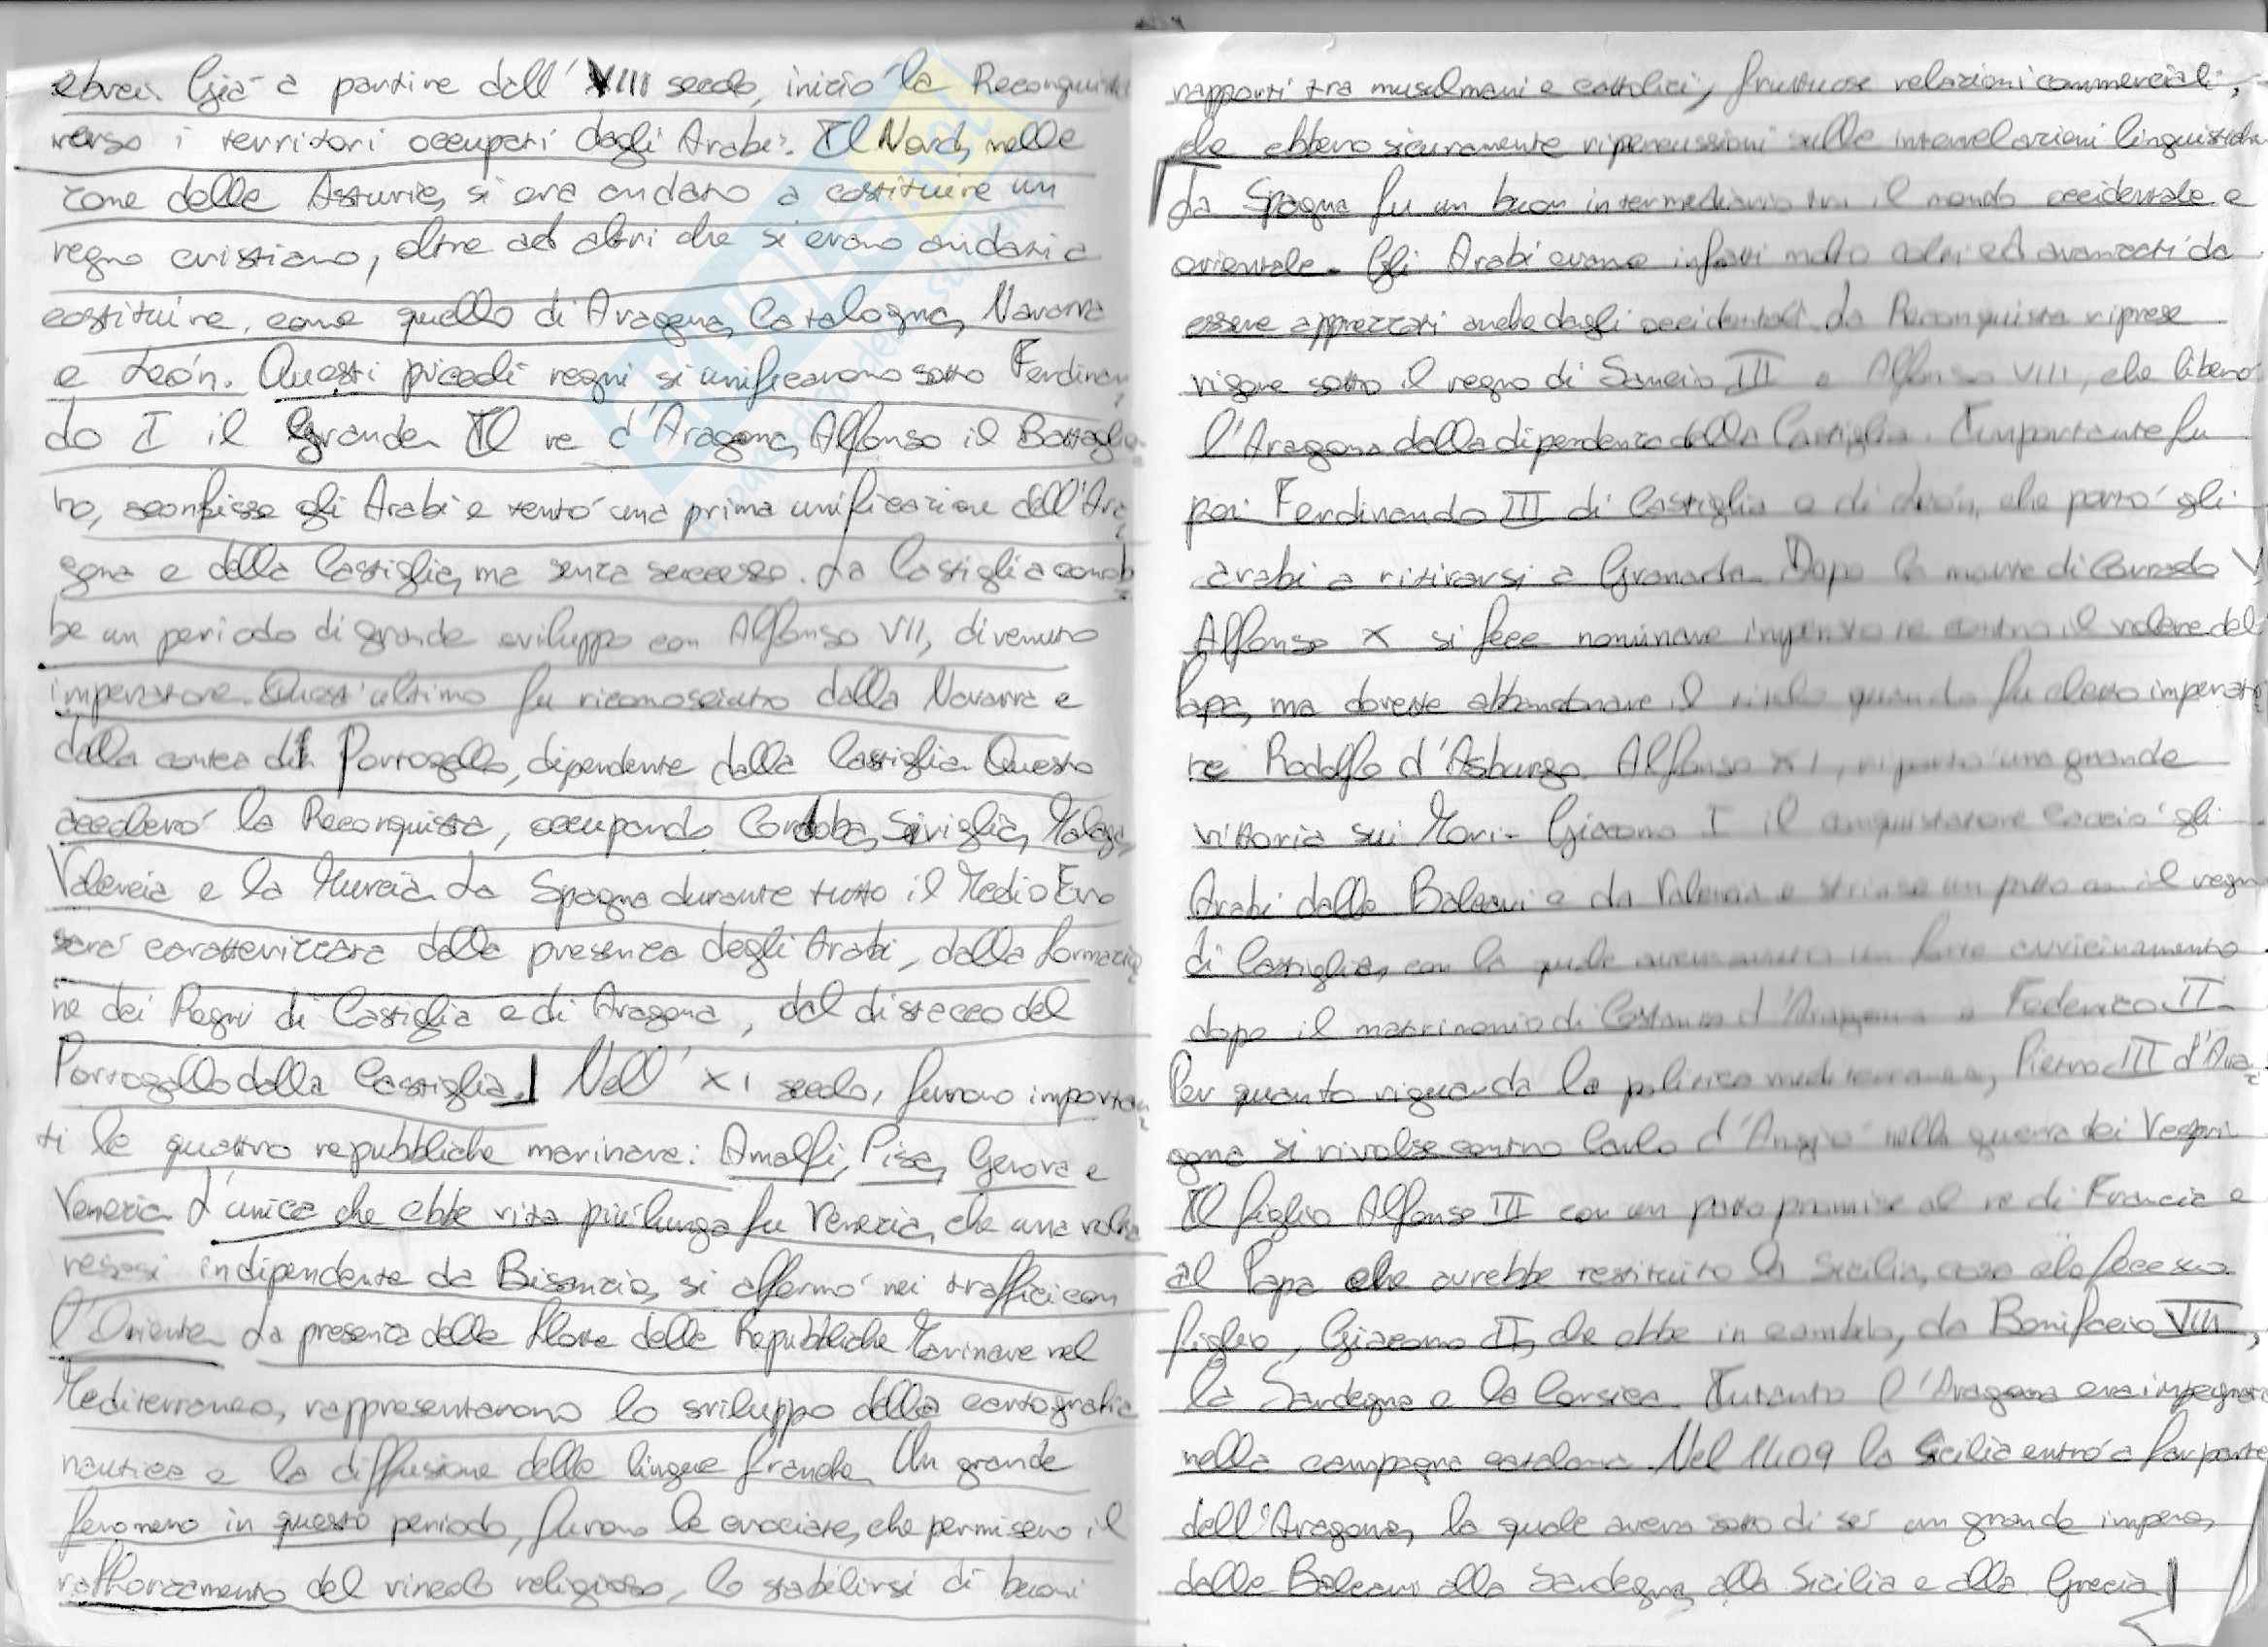 ebrei. Già a partire dall'VIII secolo, iniziò la Reconquista
verso i territori occupati dagli Arabi. Il Nord, nelle
zone delle Asturie, si era andato a costituire un
regno cristiano, oltre ad altri che si erano andati a
costituire, come quello di Aragona, Catalogna, Navarra
e León. Questi piccoli regni si unificarono sotto Ferdinan
do I il Grande. Il re d'Aragona, Alfonso il Battaglie
ro, sconfisse gli Arabi e tentò una prima unificazione dell'Ara
gona e della Castiglia, ma senza successo. La Castiglia conob
be un periodo di grande sviluppo con Alfonso VII, divenuto
imperatore. Quest'ultimo fu riconosciuto dalla Navarra e
dalla contea del Portogallo, dipendente dalla Castiglia. Questo
accelerò la Reconquista, occupando Cordoba, Siviglia, Malaga,
Valencia e la Murcia. La Spagna durante tutto il Medio Evo
sarà caratterizzata dalla presenza degli Arabi, dalla formazio
ne dei Regni di Castiglia e di Aragona, dal distacco del
Portogallo dalla Castiglia. Nell'XI secolo, furono importan
ti le quattro repubbliche marinare: Amalfi, Pisa, Genova e
Venezia. L'unica che ebbe vita più lunga fu Venezia, che una volta
resasi indipendente da Bisanzio, si affermò nei traffici con
l'Oriente. La presenza delle flotte delle Repubbliche Marinare nel
Mediterraneo, rappresentarono lo sviluppo della cartografia
nautica e la diffusione delle lingue franche. Un grande
fenomeno in questo periodo, furono le crociate, che permisero il
rafforzamento del vincolo religioso, lo stabilirsi di buoni
rapporti tra musulmani e cattolici, fruttuose relazioni commerciali,
che ebbero sicuramente ripercussioni sulle interrelazioni linguistiche
La Spagna fu un buon intermediario tra il mondo occidentale e
orientale. Gli Arabi erano infatti molto colti ed avanzati da
essere apprezzati anche dagli occidentali. La Reconquista riprese
vigore sotto il regno di Sancio III e Alfonso VIII, che liberò
l'Aragona dalla dipendenza della Castiglia. Importante fu
poi Ferdinando III di Castiglia e di León, che portò gli
arabi a ritirarsi a Granada. Dopo la morte di Corrado V
Alfonso X si fece nominare imperatore contro il volere del
Papa, ma dovette abbandonare il titolo quando fu eletto imperato
re Rodolfo d'Asburgo. Alfonso XI, riportò una grande
vittoria sui Mori. Giacomo I il conquistatore cacciò gli
Arabi dalle Baleari e da Valencia e strinse un patto con il regno
di Castiglia, con la quale aveva avuto un forte avvicinamento
dopo il matrimonio di Costanza d'Aragona e Federico II.
Per quanto riguarda la politica mediterranea, Pietro III d'Ara
gona si rivolse contro Carlo d'Angiò nella guerra dei Vespri.
Il figlio Alfonso III con un patto promise al re di Francia e
al Papa che avrebbe restituito la Sicilia, cosa che fece suo
figlio, Giacomo II, che ebbe in cambio, da Bonifacio VIII,
la Sardegna e la Corsica. Intanto l'Aragona era impegnata
nella campagna catalana. Nel 1409 la Sicilia entrò a far parte
dell'Aragona, la quale aveva sotto di sé un grande impero,
dalle Baleari alla Sardegna, alla Sicilia e alla Grecia